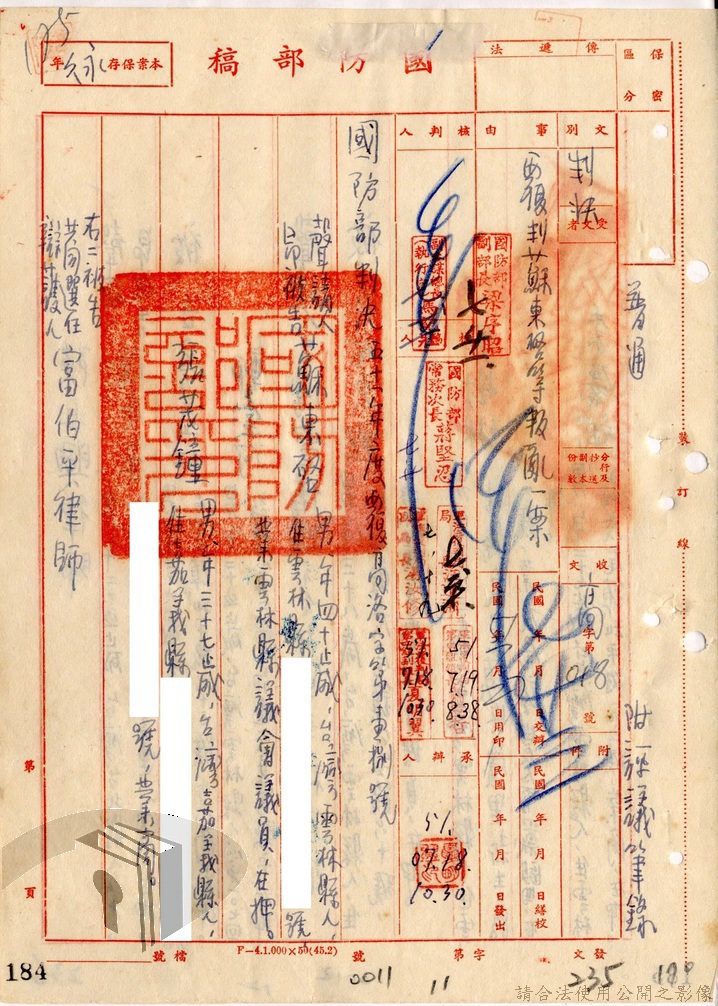 保密區分
普通
附評議筆錄
傳遞法
文別
判決
受文者
事由
覆判蘇東啟等叛亂一案
分行及抄送副本份數
收文
字第
048
號
附件
民國 年 月 日交辦
民國 年 月 日繕校
民國 年 月 日用印
民國 年 月 日發出
核判人
承辦人
國防部副部長梁序昭
國防部常務次長蔣堅忍
51. 7.19 8.38.
51. 7.18. 10.30.
51. 07.18. 10.30.
國防部稿
本案保存永久年
國防部判決五十一年度覆高
字第
號
聲請人即被告 蘇東啟 男
年四十
歲,台灣雲林縣人,
住雲林縣
號
業雲林縣議會議員,在押。
張茂鐘 男
年三十七
歲,台灣嘉義縣人,
住嘉義縣
號,業商。
右二被告共同選任辯護人 富伯平律師
裝訂線
第 頁
發文 字第 號
檔號
F-4.1.000×50(45.2)
0011 11
235
189
184
請合法使用公開之影像